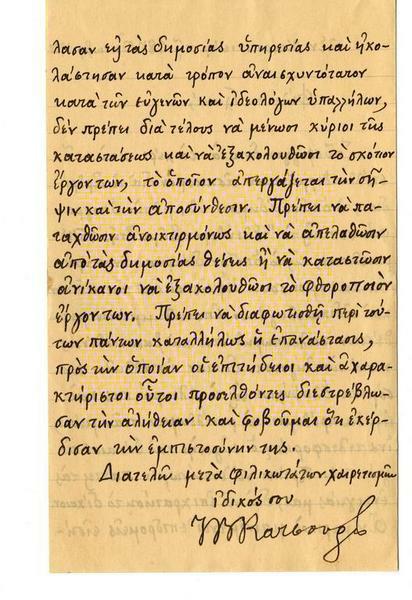 λασαν εἰς τὰς δημοσίας ὑπηρεσίας καὶ ἠκο-
λάστησαν κατὰ τρόπον ἀναισχυντότατον
κατὰ τῶν εὐγενῶν καὶ ἰδεολόγων ὑπαλλήλων,
δὲν πρέπει διὰ τέλους νὰ μένωσι κύριοι τῆς
καταστάσεως καὶ νὰ ἐξακολουθῶσι τὸ σκότιον
ἔργον των, τὸ ὁποῖον ἀπεργάζεται τὴν σῆ-
ψιν καὶ τὴν ἀποσύνθεσιν. Πρέπει νὰ πα-
ταχθῶσιν ἀνοικτιρμόνως καὶ νὰ ἀπελαθῶσιν
ἀπὸ τὰς δημοσίας θέσεις ἢ νὰ καταστῶσιν
ἀνίκανοι νὰ ἐξακολουθῶσι τὸ φθοροποιὸν
ἔργον των. Πρέπει νὰ διαφωτισθῇ περὶ τού-
των πάντων καταλλήλως ἡ ἐπανάστασις,
πρὸς τὴν ὁποίαν οἱ ἐπιτήδειοι καὶ ἀχαρα-
κτήριστοι οὗτοι προσελθόντες διεστρέβλω-
σαν τὴν ἀλήθειαν καὶ φοβοῦμαι ὅτι ἐκέρ-
δισαν τὴν ἐμπιστοσύνην της.
Διατελῶ μετὰ φιλικωτάτων χαιρετισμῶν
ἰδικός σου